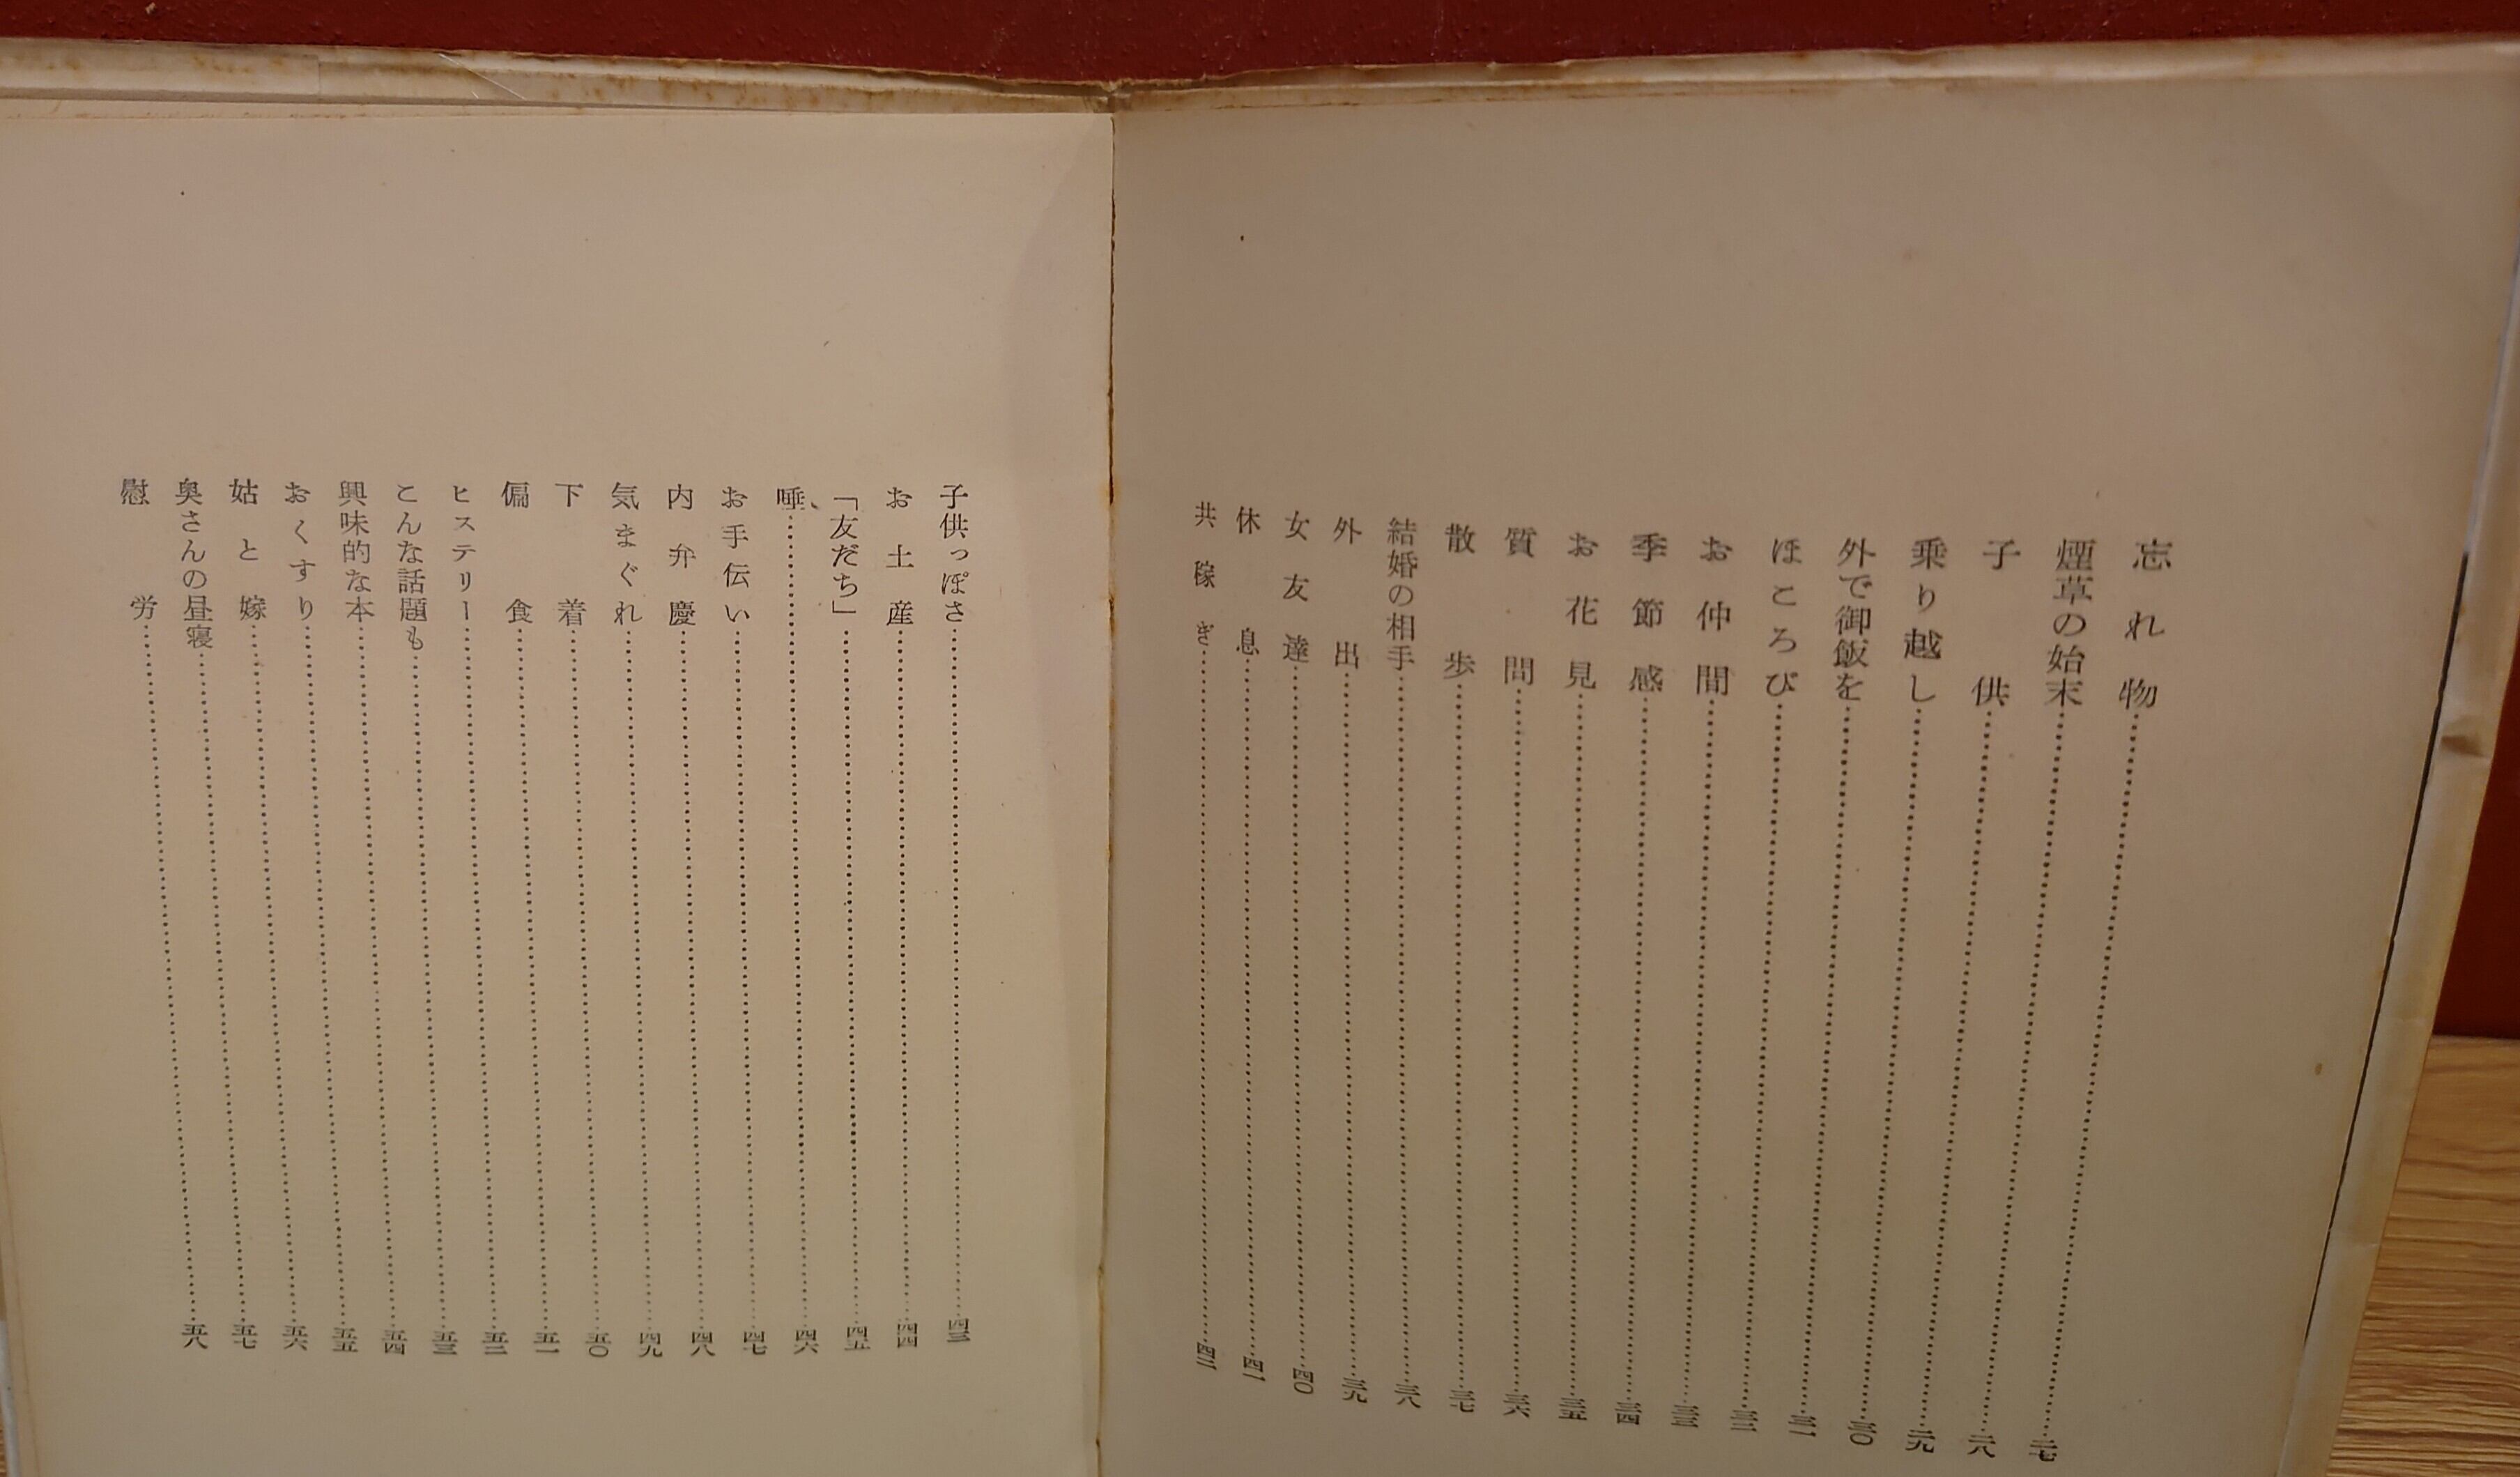 忘れ物……二七
煙草の始末……二八
子供……二九
乗り越し……三〇
外で御飯を……三一
ほころび……三二
お仲間……三三
季節感……三四
お花見……三五
質問……三六
散歩……三七
結婚の相手……三八
外出……三九
女友達……四〇
休息……四一
共稼ぎ……四二
子供っぽさ……四三
お土産……四四
「友だち」……四五
唾、……四六
お手伝い……四七
内弁慶……四八
気まぐれ……四九
下着……五〇
偏食……五一
ヒステリー……五二
こんな話題も……五三
興味的な本……五四
おくすり……五五
姑と嫁……五六
奥さんの昼寝……五七
慰労……五八